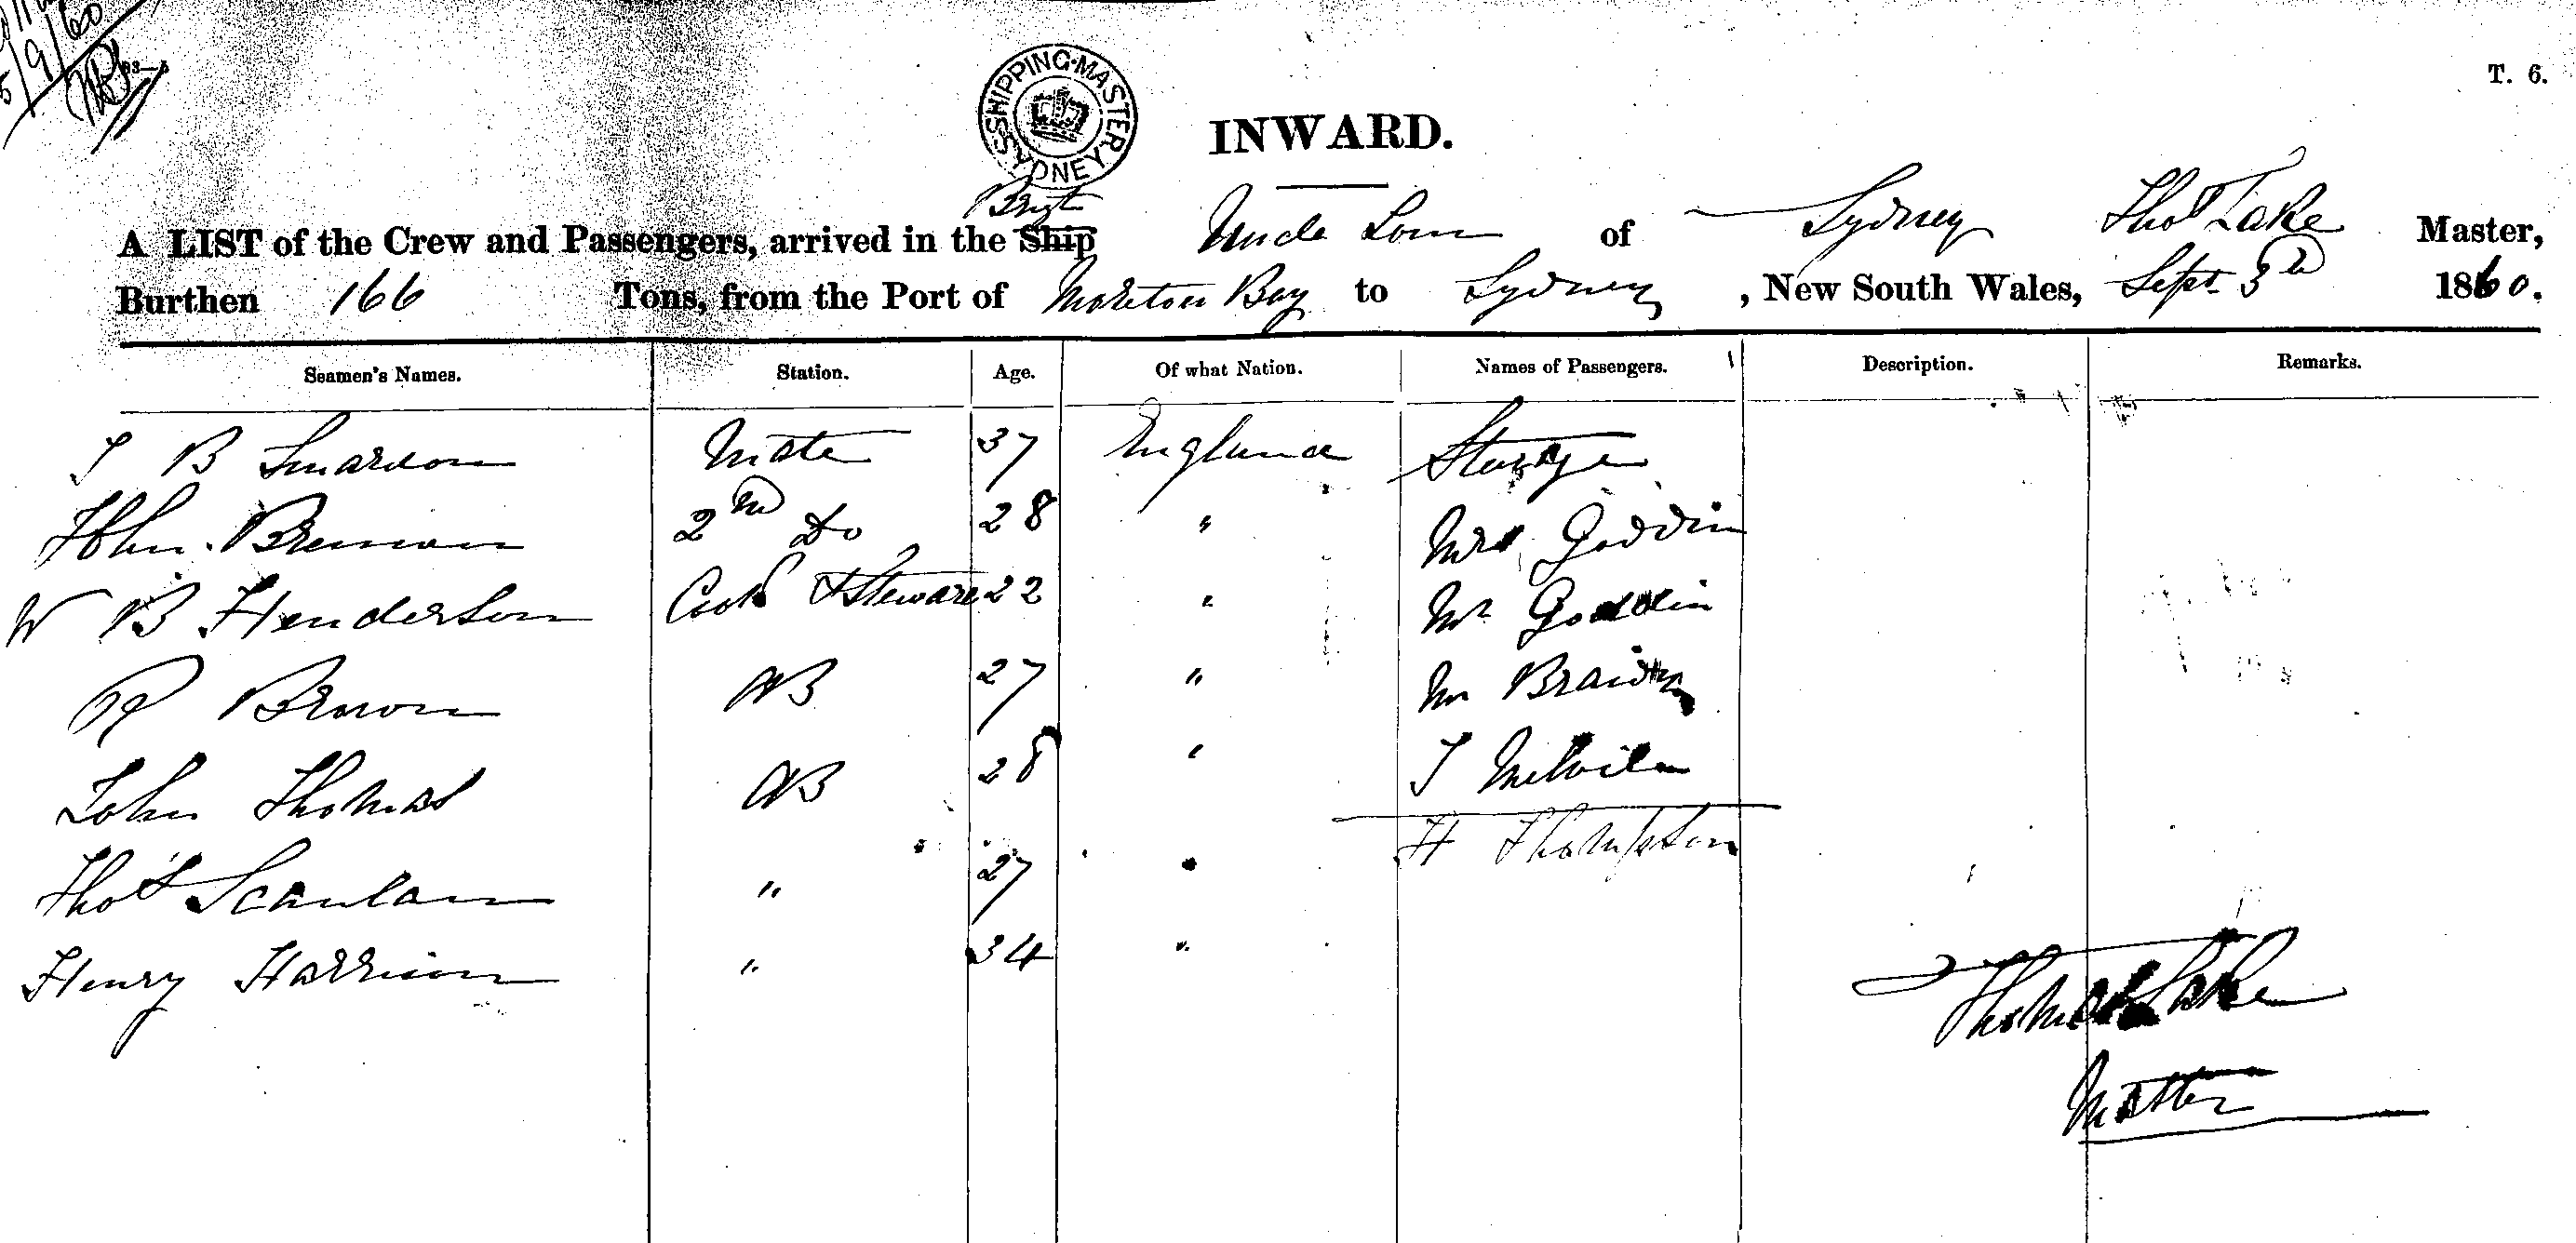 5/9/60
T. 6.
SHIPPING-MASTER SYDNEY
INWARD.
Brigt
A LIST of the Crew and Passengers, arrived in the Ship Uncle Tom of Sydney Thos Lake Master,
Burthen 166 Tons, from the Port of Moreton Bay to Sydney, New South Wales, Sept 3rd 1860.
Seamen's Names. Station. Age. Of what Nation. Names of Passengers. Description. Remarks.
J B Smardon Mate 37 England Steerage
John Brennan 2nd Do 28 " Mrs Goddin
W B Henderson Cook & Steward 22 " Mr Goddin
R Brown AB 27 " Mr
John Thomas AB 28 " J
Thos Scanlan " 27 " H Thompson
Henry Harrison " 34 "
Thomas Lake
Master